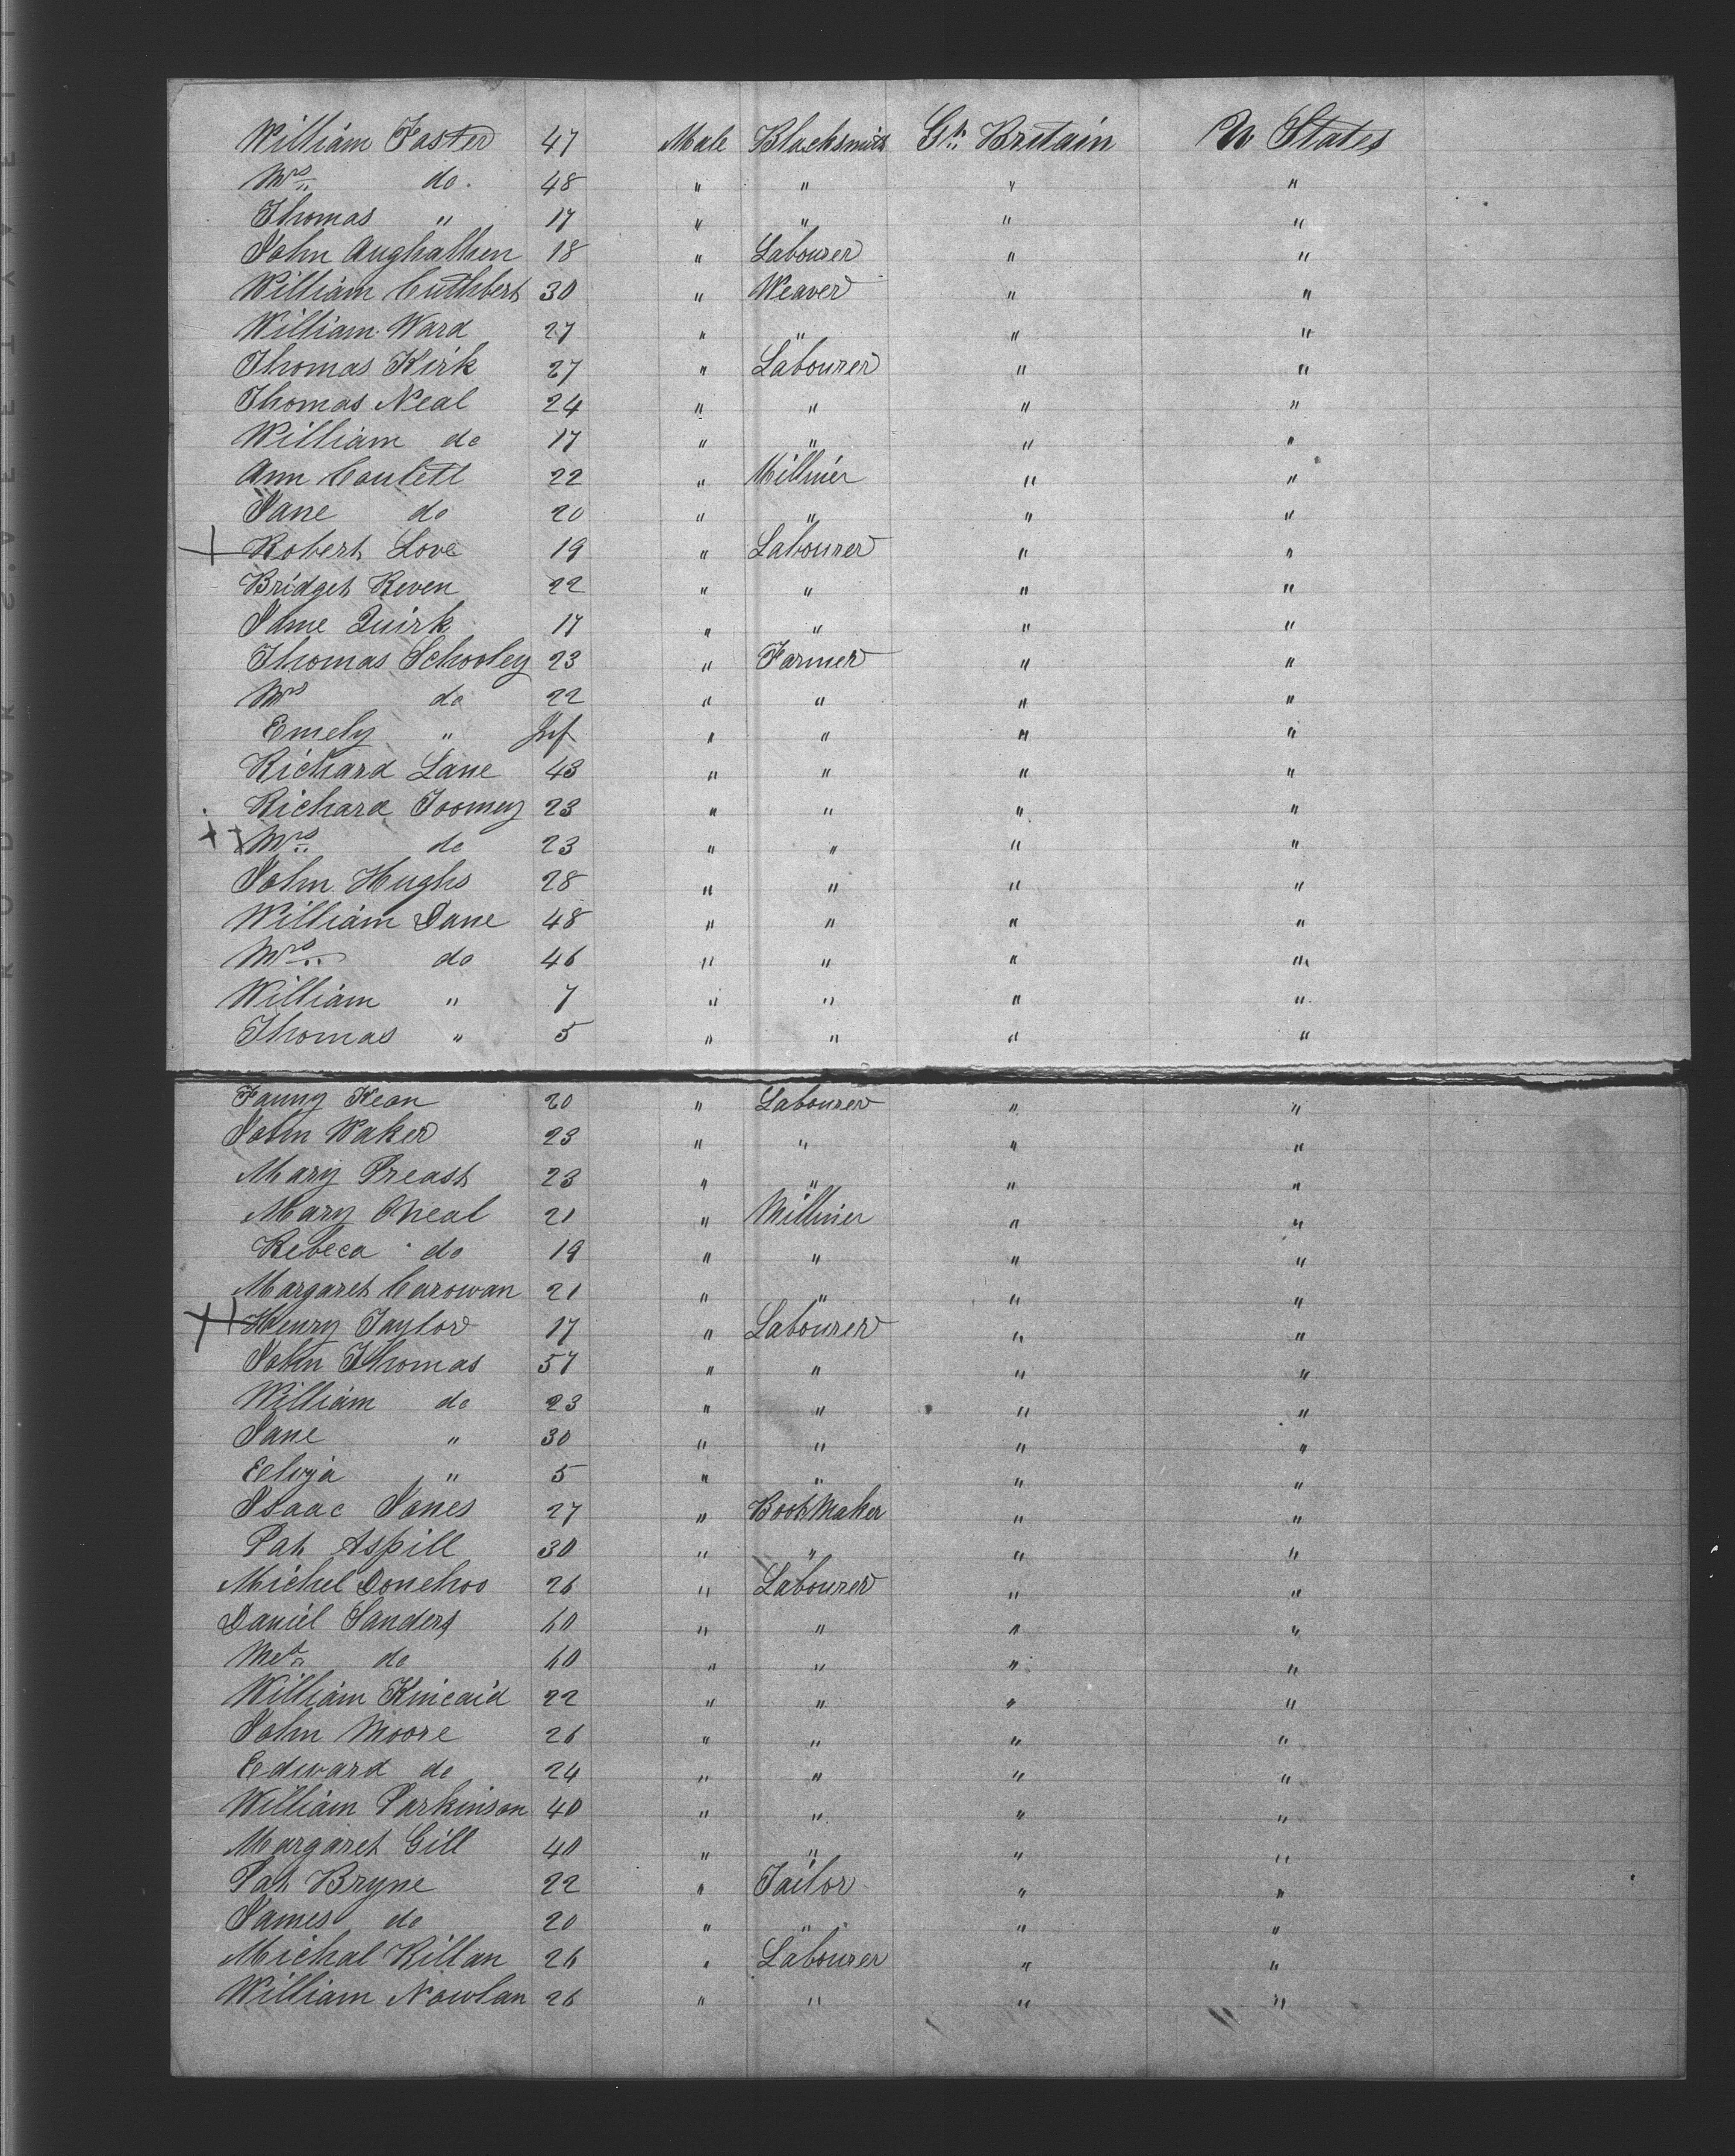 William Foster 47 Male Blacksmith Gt. Britain U States
Mrs do. 48 " " " "
Thomas " 17 " " " "
John Aughalhen 18 " Labourer " "
William Cuthbert 30 " Weaver " "
William Ward 27 " " " "
Thomas Kirk 27 " Labourer " "
Thomas Neal 24 " " " "
William do 17 " " " "
Ann 22 " Milliner " "
Jane do 20 " " " "
Robert Love 19 " Labourer " "
Bridget Reven 22 " " " "
Jane Quirk 17 " " " "
Thomas Schooley 23 " Farmer " "
Mrs do 22 " " " "
Emely " Inf " " " "
Richard Lane 43 " " " "
Richard Toomey 23 " " " "
Mrs do 23 " " " "
John Hughs 28 " " " "
William Dane 48 " " " "
Mrs do 46 " " " "
William " 7 " " " "
Thomas " 5 " " " "
Fanny Kean 20 " Labourer " "
John Waker 23 " " " "
Mary Preast 23 " " " "
Mary Oneal 21 " Milliner " "
Rebeca do 19 " " " "
Margaret Carowan 21 " " " "
Henry Taylor 17 " Labourer " "
John Thomas 57 " " " "
William do 23 " " " "
Jane " 30 " " " "
" 5 " " " "
Isaac Jones 27 " Boot Maker " "
Pat Aspill 30 " " " "
Michel Donehoo 26 " Labourer " "
Daniel Sanders 60 " " " "
do 60 " " " "
William Kincaid 22 " " " "
John Moore 26 " " " "
Edward do 24 " " " "
William Parkinson 40 " " " "
Margaret Gill 40 " " " "
Pat Bryne 22 " Tailor " "
James do 20 " " " "
Michal Killan 26 " Labourer " "
William Nowlan 26 " " " "